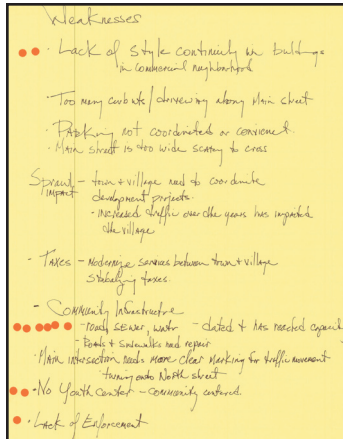 Weaknesses
• Lack of Style continuity in buildings
in commercial neighborhood
• Too many curb cuts/driveways along Main street
• Parking not coordinated or convient.
• Main street is too wide scary to cross
Sprawl - town & village need to coordinate
Impact development projects.
• Increased traffic over the years has impacted
the village
• Taxes - Modernize services between town & village
Stabalizing taxes.
• Community Infrastructure
- roads, sewer, water - dated & has reached capacity
- Roads & sidewalks need repair
• Main intersection needs more clear marking for traffic movement
- turning onto North street
• No Youth Center - community centered.
• Lack of Enforcement